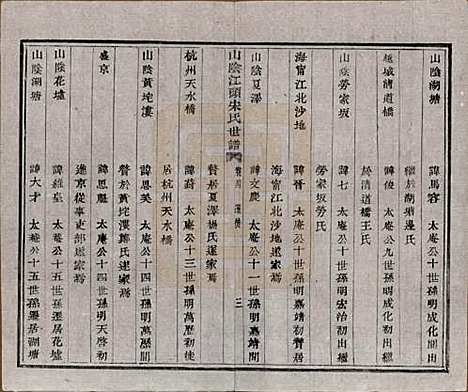 山陰湖塘
諱馬容 太庵公十世孫明成化間
繼於湖塘邊氏
越城清道橋
諱俊 太庵公九世孫明成化初出繼
於清道橋王氏
山陰勞家坂
諱 太庵公十世孫明宏治初出繼
勞家坂勞氏
海甯江北沙地
諱 太庵公十一世孫明嘉靖初贅居
海甯江北沙地遂家焉
山陰夏澤
諱文慶 太庵公十一世孫明嘉靖間
贅居夏澤 氏遂家焉
山陰江頭宋氏世譜
三
杭州天水橋
太庵公十三世孫明萬歷初
居杭州天水橋
山陰黃垞漊
諱恩芙 太庵公十四世孫明萬歷間
贅於黃垞漊鄭氏遂家焉
盛京
諱恩 太庵公十四世孫明天啓初
進京從事吏部遂家焉
山陰花墟
諱維皇 太庵公十五世孫遷居花墟
山陰湖塘
諱大才 太庵公十五世孫遷居湖塘